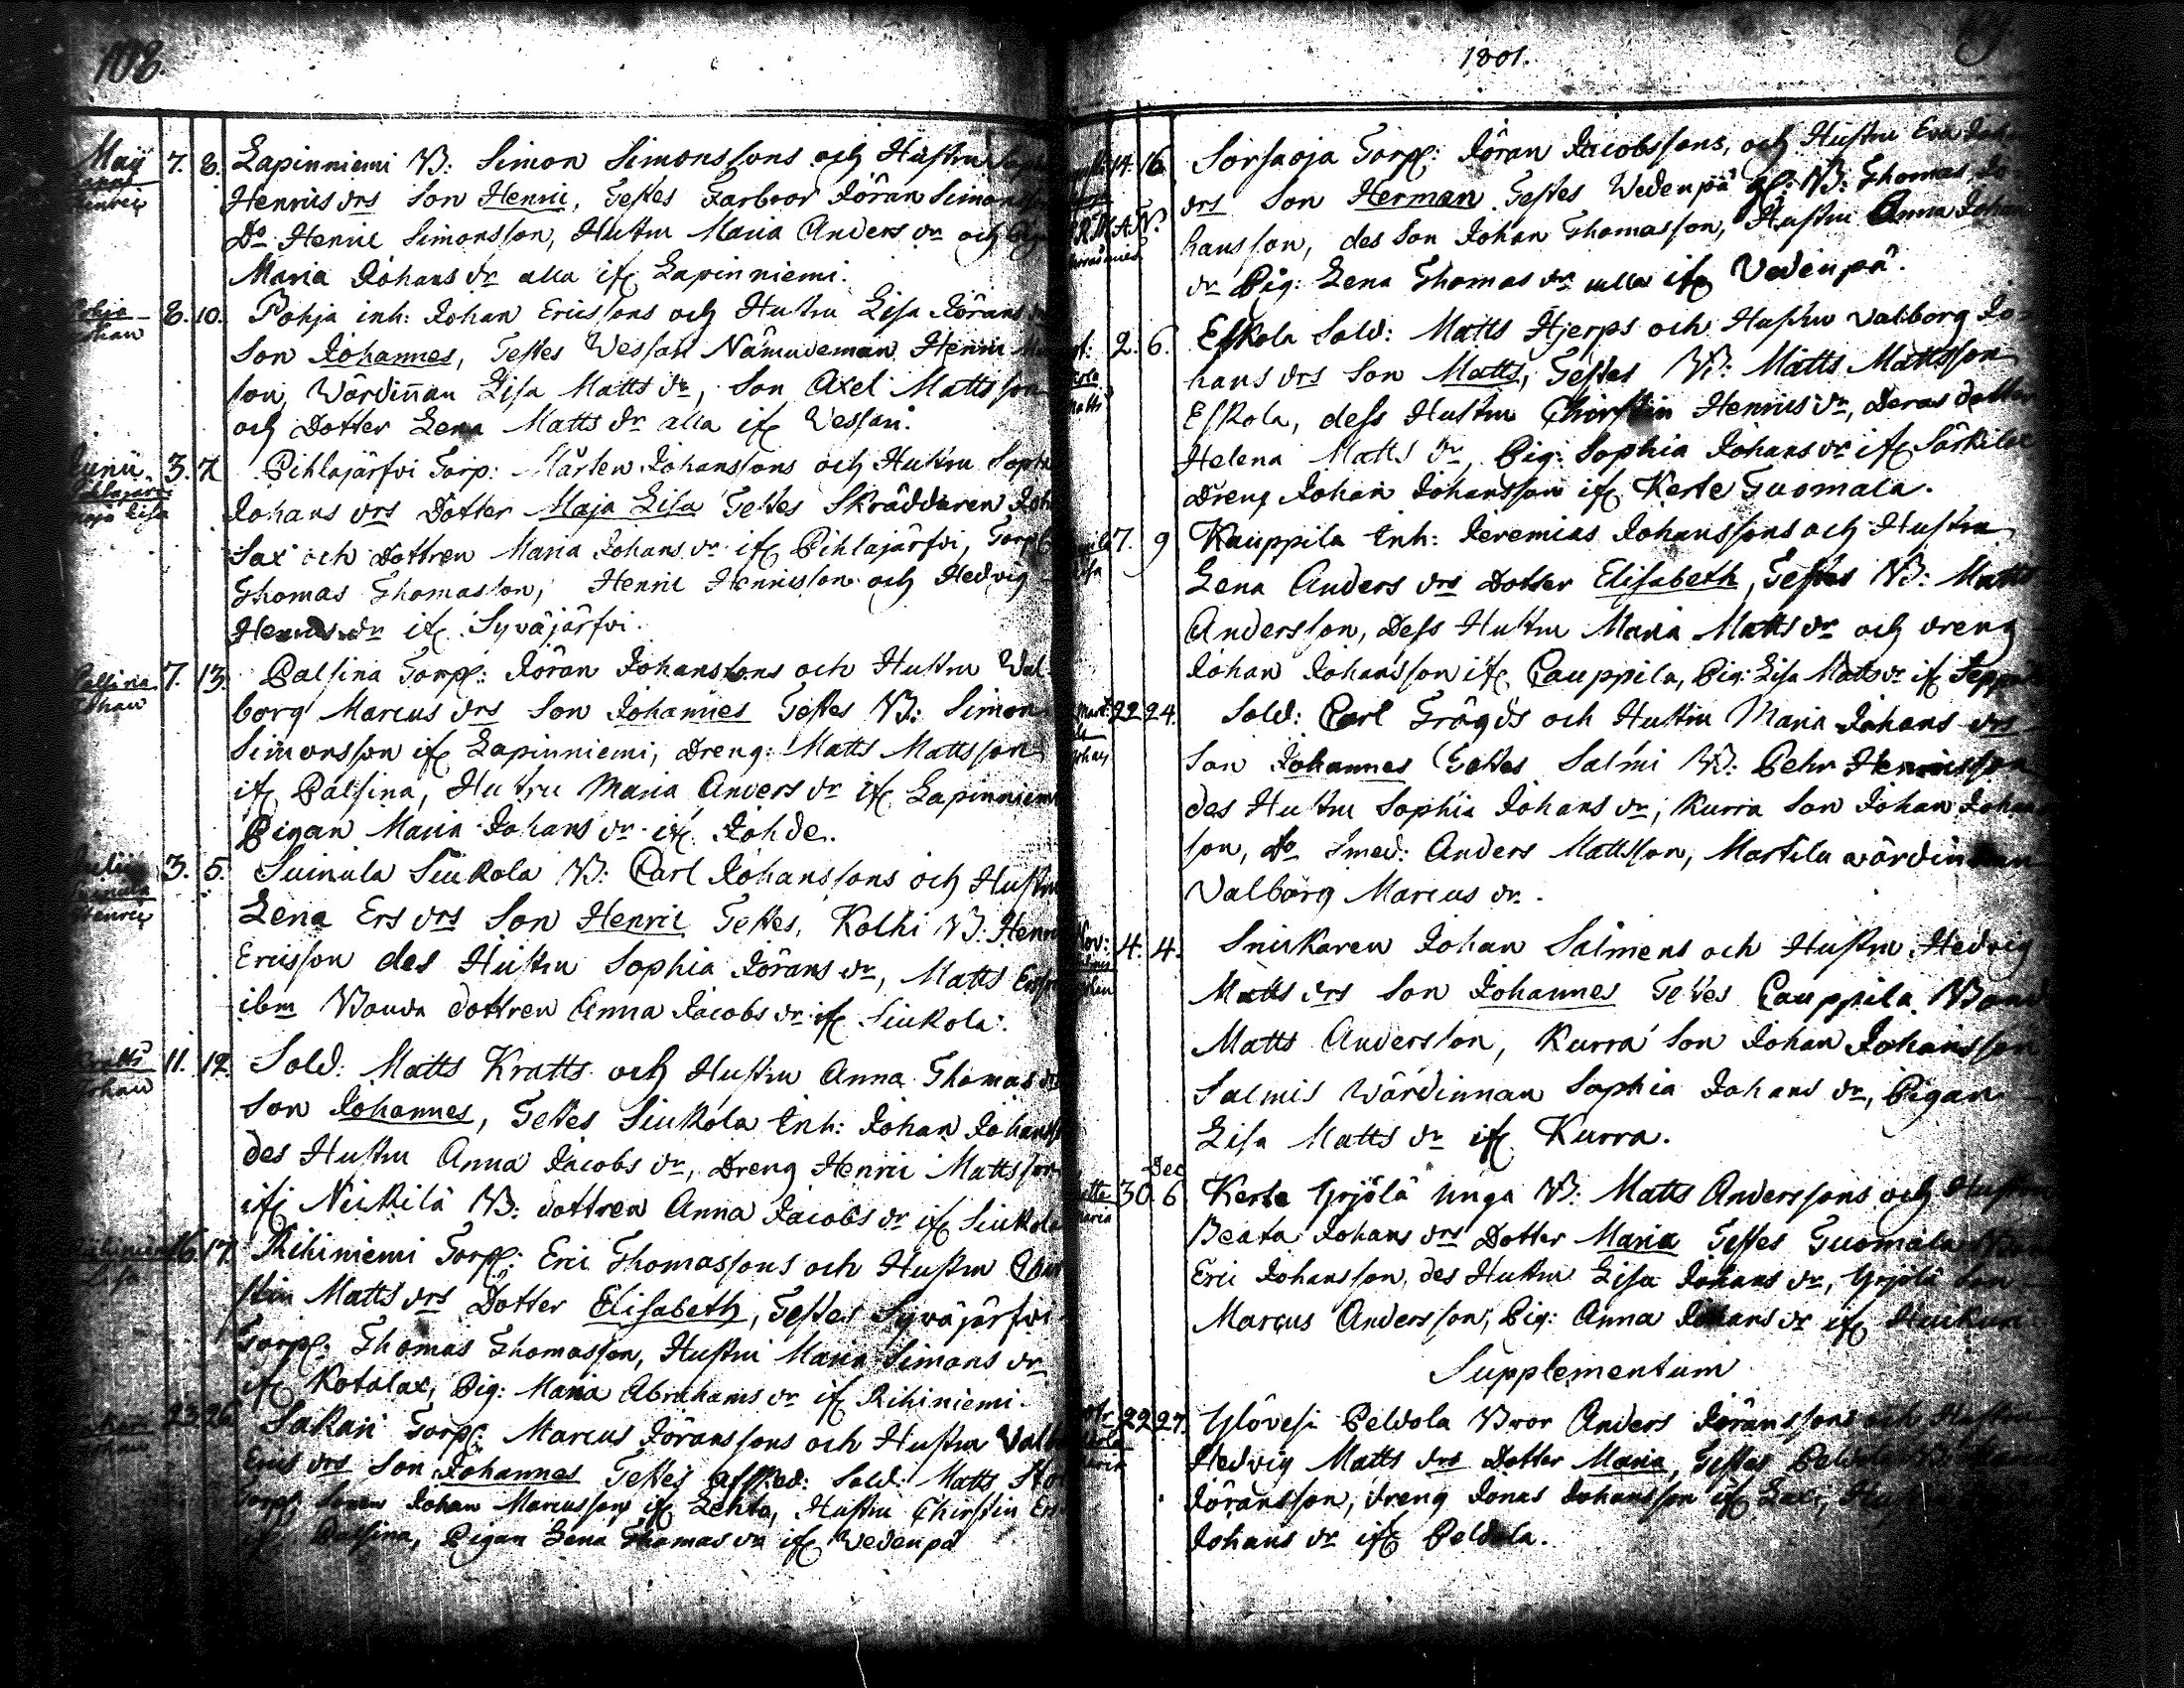 108.
Maij 7. 8. Lapinniemi B: Simon Simonssons och Hustru
Henrics drs Son Henric, Testes Farbror Jöran Simons
Do Henric Simonsson, Hustru Maria Anders dr och
Maria Johans dr alla ifr Lapinniemi.
8. 10. Pohja inh: Johan Ericssons och Hustru Lisa Jörans
Son Johannes, Testes Wessari Nämndeman Henric
son, Wärdinnan Lisa Matts dr, Son Axel Mattsson
och Dotter Lena Matts dr alla ifr Wessari.
Junii 3. 7. Pihlajärfvi Torp: Mårten Johanssons och Hustru Sophia
Maja Lisa Johans drs Dotter Maja Lisa Testes Skräddaren Joh
Sax och Dottren Maria Johans dr ifr Pihlajärfvi, Torp:
Thomas Thomasson, Henric Henricsson och Hedvig
Henrics dr ifr Syväjärfvi.
Palsina 7. 13. Palsina Torp: Jöran Johanssons och Hustru Wal
Johan borg Marcus drs Son Johannes Testes B: Simon
Simonsson ifr Lapinniemi, Dreng: Matts Mattsson
ifr Palsina, Hustru Maria Anders dr ifr Lapinniemi
Pigan Maria Johans dr ifr Johde.
3. 5. Suinula Siukola B: Carl Johanssons och Hustru
Henric Lena Ers drs Son Henric Testes, Kolhi B: Henric
Ericsson des Hustru Sophia Jörans dr, Matts Ersson
ibm Bonda dottren Anna Jacobs dr ifr Siukola.
Kratts 11. 12. Sold: Matts Kratts och Hustru Anna Thomas drs
Johan Son Johannes, Testes Siukola Inh: Johan Johanss
des Hustru Anna Jacobs dr, Dreng Henric Mattsson
ifr Neikilä B: dottren Anna Jacobs dr ifr Siukola
Rihiniemi 16. 17. Rihiniemi Torp: Eric Thomassons och Hustru Chir
Lisa stin Matts drs Dotter Elisabeth, Testes Syväjärfvi
Torp: Thomas Thomasson, Hustru Maria Simons dr
ifr Kotalax, Pig: Maria Abrahams dr ifr Rihiniemi.
23. 26. Sakari Torp: Marcus Jöranssons och Hustru Valb
Erics drs Son Johannes Testes afsked: Sold: Matts
Torp: Sonen Johan Marcusson ifr Lehto, Hustru Chirstin Er
Palsina, Pigan Lena Thomas dr ifr Wedenpä
1801.
14. 16. Sorsaoja Torp: Jöran Jacobssons, och Hustru Eva Joh
drs Son Herman Testes Wedenpä B: Thomas Jo
hansson, des Son Johan Thomasson, Hustru Anna Johans
dr Pig: Lena Thomas dr alla ifr Wedenpä.
2. 6. Eskola Sold: Matts Hjerps och Hustru Valborg Jo
hans drs Son Matts, Testes B: Matts Mattsson
Matts Eskola, dess Hustru Chirstin Henrics dr, deras dotter
Helena Matts dr, Pig: Sophia Johans dr ifr Särkilä
Dreng Johan Johansson ifr Kerte Tuomala.
7. 9 Kauppila Inh: Jeremias Johanssons och Hustru
Lena Anders drs Dotter Elisabeth, Testes B: Matts
Andersson, Dess Hustru Maria Matts dr och dreng
Johan Johansson ifr Cauppila, Pig: Lisa Matts dr ifr
22 24. Sold: Carl Trögds och Hustru Maria Johans drs
Johan Son Johannes Testes Salmi B: Pehr Henricsson
des Hustru Sophia Johans dr, Kurra Son Johan Johans
son, do Smed: Anders Mattsson, Martila wärdinnan
Valborg Marcus dr.
Nov: 4. 4. Snikaren Johan Salmens och Hustru Hedvig
Johan Matts drs Son Johannes Testes Cauppila Bond
Matts Andersson, Kurra Son Johan Johansson
Salmis Wärdinnan Sophia Johans dr, Pigan
Lisa Matts dr ifr Kurra.
Dec
30. 6 Kerte Yrjölä unga B: Matts Anderssons och Hustru
Maria Beata Johans drs Dotter Maria Testes Tuomala
Eric Johansson, des Hustru Lisa Johans dr, Yrjölä Son
Marcus Andersson, Pig: Anna Johans dr ifr
Supplementum
22 27. Ylövesi Peldola Bror Anders Jöranssons och Hustru
Hedvig Matts drs Dotter Maria, Testes Peldola
Jöransson, dreng Jonas Johansson ifr
Johans dr ifr Peldola.